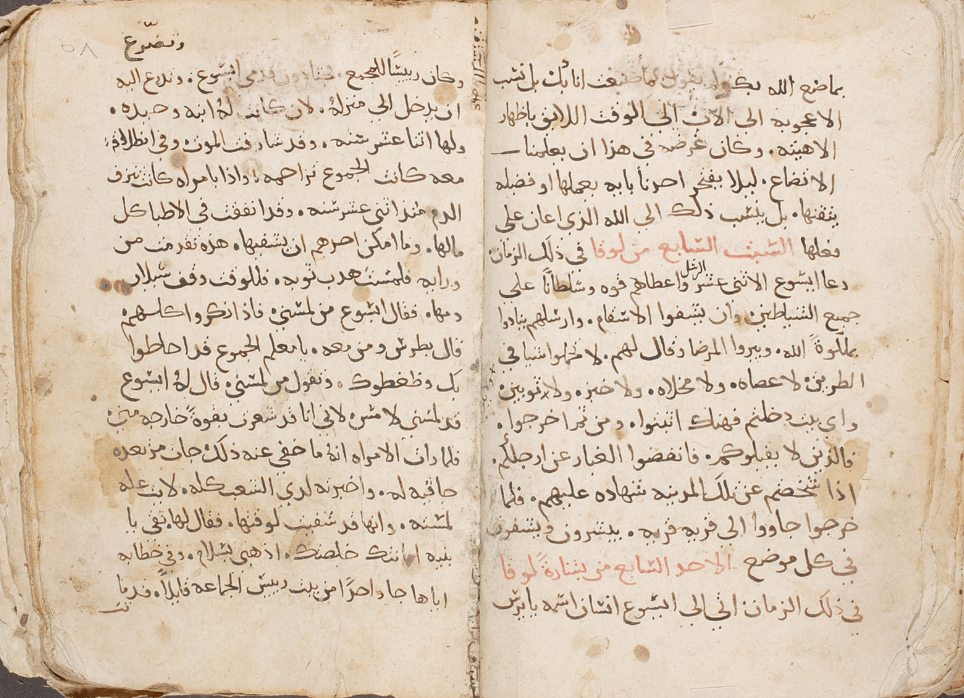 بماضع الله بك
الاعجوبه الى الان الى الوقت اللايق باظهار
الاهيته . وكان غرضه في هذا ان يعلمنا
الاتضاع . ليلا يفتخر احدنا بايه يعملها او فضله
يتقنها . بل ينسب ذلك الى الله الذي اعان على
فعلها السبت السابع من لوقا في ذلك الزمان
دعا ايسوع الاثني عشر الرسل واعطاهم قوه وسلطانًا على
جميع الشياطين . وان يشفوا الاسقام . وارسلهم ينادوا
بملكوة الله . ويبروا المرضا وقال لهم . لا تحملوا شيا في
الطريق . لا عصاه . ولا مخلاه . ولا خبز . ولا ثوبين .
واي بيت دخلتم فهناك اثبتوا . ومن ثم اخرجوا .
فالذين لا يقبلوكم . فانفضوا الغبار عن ارجلكم .
اذا شخصتم عن تلك المدينه شهاده عليهم . فلما
خرجوا جاووا الى قريه قريه . يبشرون ويشفون
في كل موضع الاحد السابع من بشارة لوقا
في ذلك الزمان اتي الي ايسوع انسان اسمه يايرس
٥٨
وتضرع
وكان رييسًا للمجمع . ايسوع . وتدرع اليه
ان يدخل الي منزله . لان كانت له ابنه وحيده .
ولها اثنا عشر سنه . وقد شارفت الموت وفي انطلاقه
معه كانت الجموع تزاحمه . واذا بامراه كانت بنزف
الدم منذ اثني عشر سنه . وقد انفقت في الاطبا كل
مالها . وما امكن احدهم ان يشفيها . هذه تقدمت من
ورايه فلمست هدب ثوبه . فللوقت وقف سيلان
دمها . فقال ايسوع من لمسني . فاذ انكروا كلهم
قال بطرس ومن معه . يا معلم الجموع قد احاطوا
بك وظغطوك . وتقول من لمسني . قال له ايسوع
قد لمسني لامس . لاني انا قد شعرت بقوة خارجه مني
فلما رات الامراه انه ما خفي عنه ذلك جات مرتعده
جاثيه له . واخبرته لدي الشعب كله . لايت عله
لمسته . وانها قد شفيت لوقتها . فقال لها ثقي يا
بنيه امانتك خلصتك . اذهبي بسلام . وفي خطابه
اياها جا واحدًا من بيت رييس الجماعه قايلاً . قد ماتت